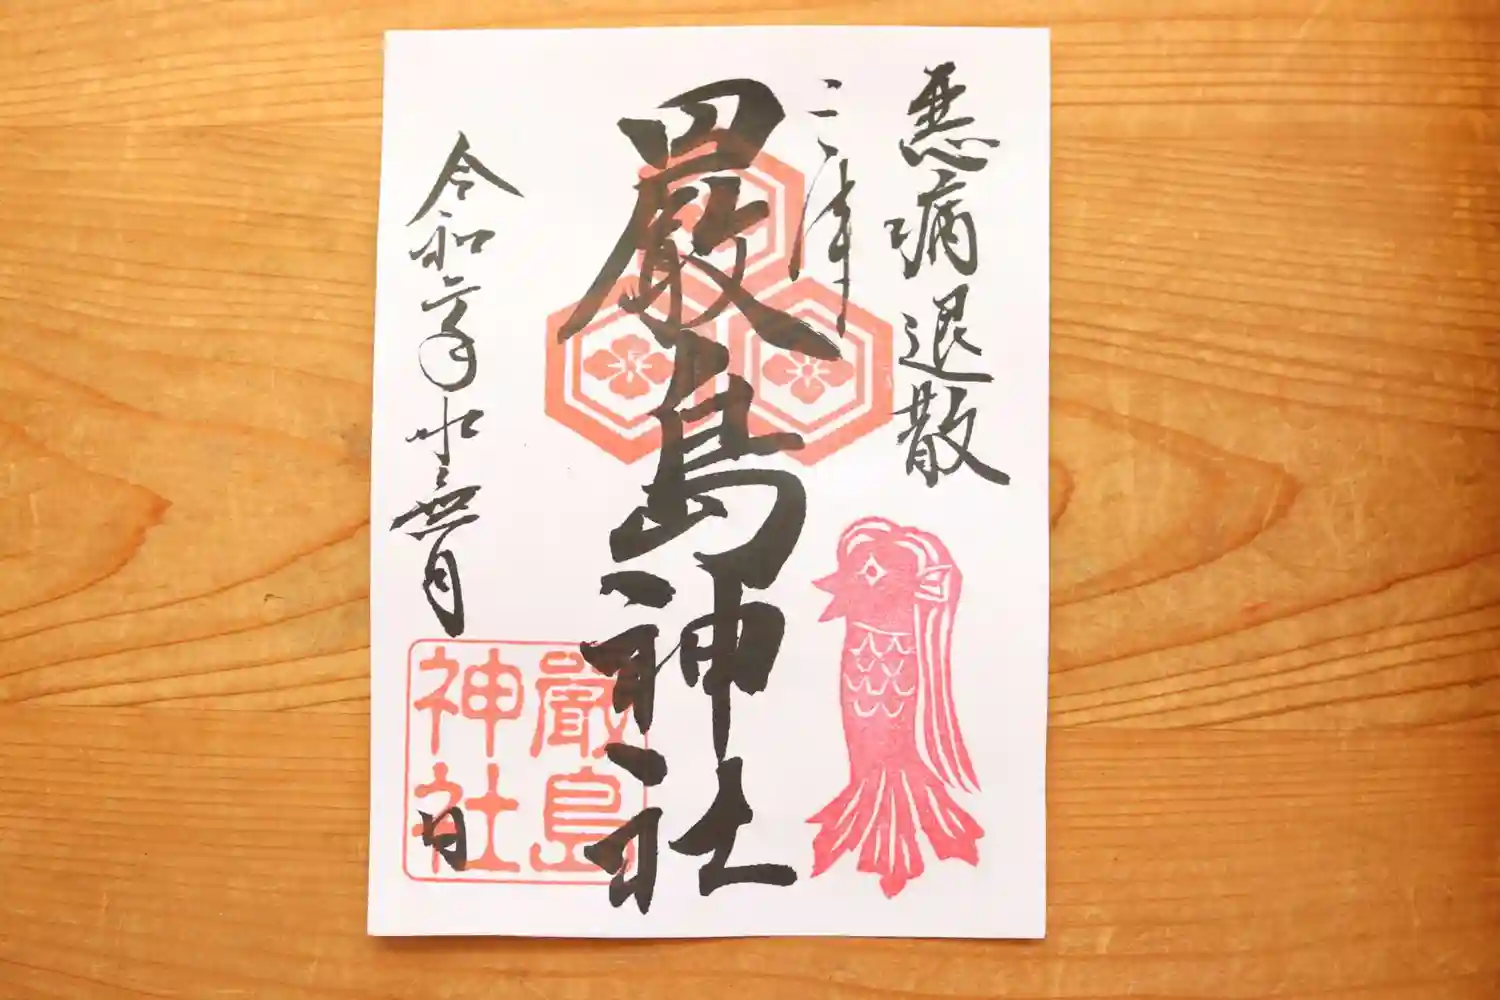 悪病退散
三津
嚴島神社
令和二年水無月 日
嚴島
神社